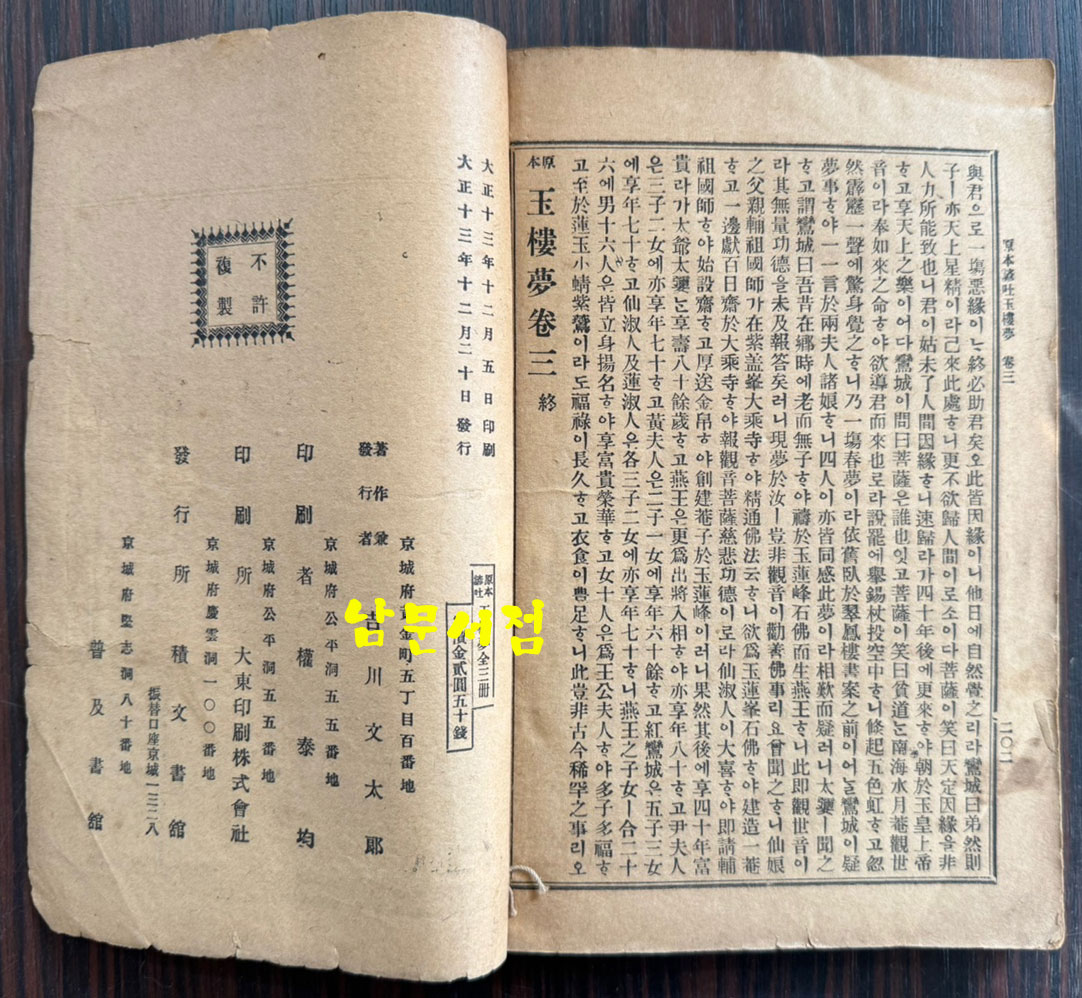 原本諺吐玉樓夢 卷三
二〇二
與君으로一塲惡緣이ᄂᆞᆫ終必助君矣오此皆因緣이니他日에自然覺之리라鸞城曰弟然則
子ㅣ亦天上星精이라己來此處ᄒᆞ니更不欲歸人間이로소이다菩薩이笑曰天定因緣을非
人力所能致也니君이姑未了人間因緣ᄒᆞ니速歸라가四十年後에更來ᄒᆞ야朝於玉皇上帝
ᄒᆞ고享天上之樂이어다鸞城이問曰菩薩은誰也잇고菩薩이笑曰貧道ᄂᆞᆫ南海水月菴觀世
音이라奉如來之命ᄒᆞ야欲導君而來也로라說罷에擧錫杖投空中ᄒᆞ니倏起五色虹ᄒᆞ고忽
然霹靂一聲에驚身覺之ᄒᆞ니乃一塲春夢이라依舊臥於翠鳳樓書案之前이어ᄂᆞᆯ鸞城이疑
夢事ᄒᆞ야一一言於兩夫人諸娘ᄒᆞ니四人이亦皆同感此夢이라相歎而疑러니太㜮ㅣ聞之
ᄒᆞ고謂鸞城曰吾昔在鄕時에老而無子ᄒᆞ야禱於玉蓮峰石佛而生燕王ᄒᆞ니此即觀世音이
라其無量功德을未及報答矣러니現夢於汝ㅣ豈非觀音이勸善佛事리요曾聞之ᄒᆞ니仙娘
之父親輔祖國師가在紫盖峯大乘寺ᄒᆞ야精通佛法云ᄒᆞ니欲爲玉蓮峯石佛ᄒᆞ야建造一菴
ᄒᆞ고一邊獻百日齋於大乘寺ᄒᆞ야報觀音菩薩慈悲功德이로라仙淑人이大喜ᄒᆞ야即請輔
祖國師ᄒᆞ야始設齋ᄒᆞ고厚送金帛ᄒᆞ야創建菴子於玉蓮峰이러니果然其後에享四十年富
貴라가太爺太㜮ᄂᆞᆫ享壽八十餘歲ᄒᆞ고燕王은更爲出將入相ᄒᆞ야亦享年八十ᄒᆞ고尹夫人
은三子二女에亦享年七十ᄒᆞ고黃夫人은二子一女에享年六十餘ᄒᆞ고紅鸞城은五子三女
에享年七十ᄒᆞ고仙淑人及蓮淑人은各三子二女에亦享年七十ᄒᆞ니燕王之子女ㅣ合二十
六에男十六人은皆立身揚名ᄒᆞ야享富貴榮華ᄒᆞ고女十人은爲王公夫人ᄒᆞ야多子多福ᄒᆞ
고至於蓮玉小蜻紫鸞이라도福祿이長久ᄒᆞ고衣食이豊足ᄒᆞ니此豈非古今稀罕之事리오
原本 玉樓夢卷三 終
大正十三年十二月五日印刷
大正十三年十二月二十日發行
不許
複製
原本
諺吐
全三册
金貳圓五十錢
京城府
金町五丁目百番地
著作兼
發行者
吉川文太郎
京城府公平洞五五番地
印刷者 權泰均
京城府公平洞五五番地
印刷所 大東印刷株式會社
京城府慶雲洞一〇〇番地
發行所 積文書舘
京城府堅志洞八十番地
振替口座京城一三二八
普及書舘
남문서점